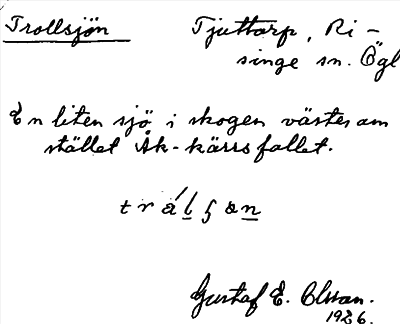 Trollsjön
Tjuttorp, Ri-
singe sn. Ögl
En liten sjö i skogen väster om
stället Åk-kärrsfallet.
Gustaf E. Olsson.
1926.